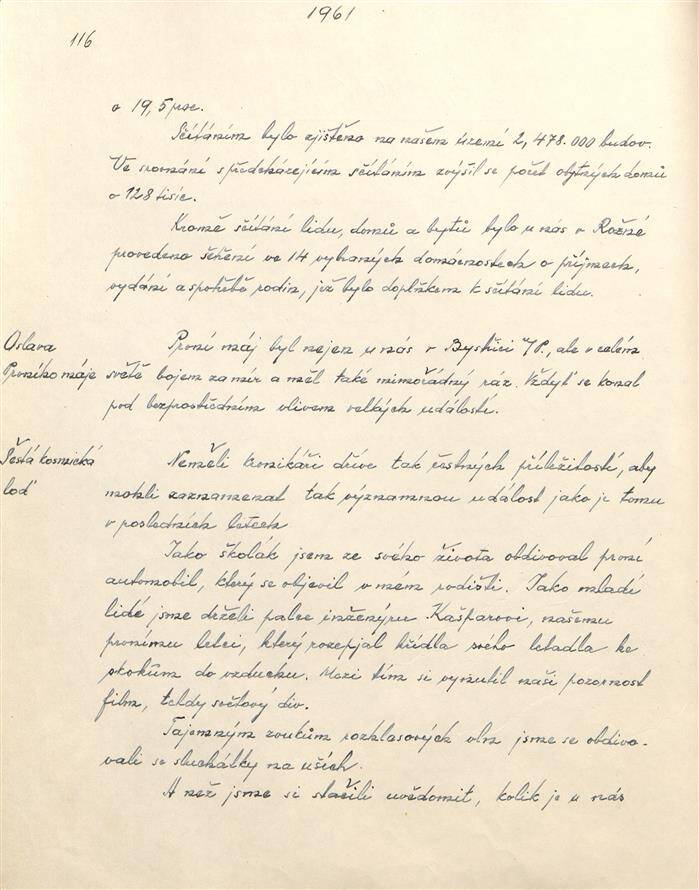 1961
116
o 19,5 proc.
Sčítáním bylo zjištěno na našem území 2,478.000 budov.
Ve srovnání s předcházejícím sčítáním zvýšil se počet obytných domů
o 128 tisíc.
Kromě sčítání lidu, domů a bytů bylo u nás v Rožné
provedeno šetření ve 14 vybraných domácnostech o příjmech,
vydání a spotřebě rodin, jež bylo doplňkem k sčítání lidu.
Oslava
Prvního máje
První máj byl nejen u nás v Bystřici n/P., ale v celém
světě bojem za mír a měl také mimořádný ráz. Vždyť se konal
pod bezprostředním vlivem velkých událostí.
Pěstá kosmická
loď
Neměli kronikáři dříve tak čestných příležitostí, aby
mohli zaznamenat tak významnou událost jako je tomu
v posledních letech
Jako školák jsem ze svého života obdivoval první
automobil, který se objevil v mem rodišti. Jako mladí
lidé jsme drželi palce inženýru Kašparovi, našemu
prvnímu letci, který rozepjal křídla svého letadla ke
skokům do vzduchu. Mezi tím si vynutil naši pozornost
film, tehdy světový div.
Tajemným zvukům rozhlasových vln jsme se obdivo-
vali se sluchátky na uších.
A než jsme si stačili uvědomit, kolik je u nás